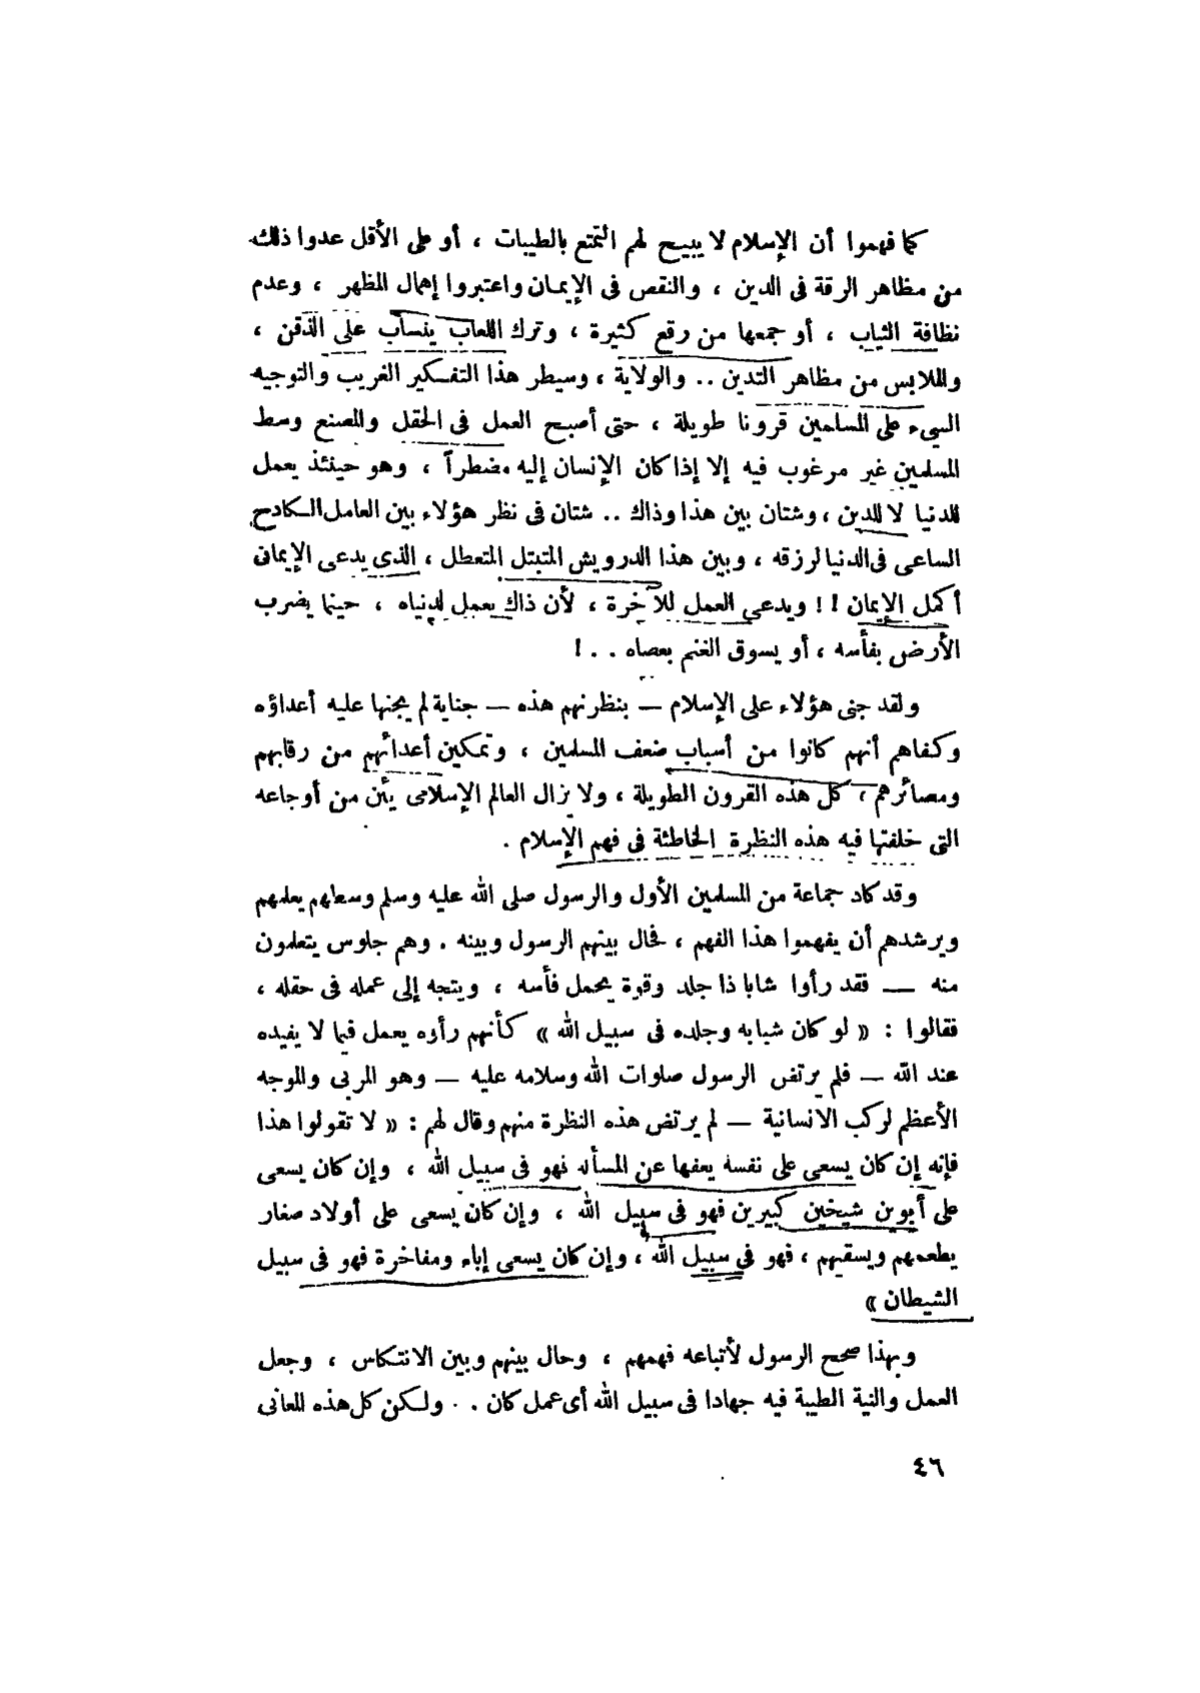 كما فهموا أن الإسلام لا يبيح لهم التمتع بالطيبات ، أو على الأقل عدوا ذلك
من مظاهر الرقة فى الدين ، والنقص فى الإيمان واعتبروا إهمال المظهر ، وعدم
نظافة الثياب ، أو جمعها من رقع كثيرة ، وترك اللعاب ينساب على الذقن ،
والملابس من مظاهر التدين .. والولاية ، وسيطر هذا التفكير الغريب والتوجيه
السيء على المسلمين قرونا طويلة ، حتى أصبح العمل فى الحقل والمصنع وسط
المسلمين غير مرغوب فيه إلا إذا كان الإنسان إليه مضطراً ، وهو حينئذ يعمل
للدنيا لا للدين ، وشتان بين هذا وذاك .. شتان فى نظر هؤلاء بين العامل الكادح
الساعى فى الدنيا لرزقه ، وبين هذا الدرويش المتبتل المتعطل ، الذى يدعى الإيمان
أكمل الإيمان !! ويدعى العمل للآخرة ، لأن ذاك يعمل لدنياه ، حينما يضرب
الأرض بفأسه ، أو يسوق الغنم بعصاه . . !
ولقد جنى هؤلاء على الإسلام — بنظرتهم هذه — جناية لم يجنها عليه أعداؤه
وكفاهم أنهم كانوا من أسباب ضعف المسلمين ، وتمكين أعدائهم من رقابهم
ومصائرهم ، كل هذه القرون الطويلة ، ولا يزال العالم الإسلامى يئن من أوجاعه
التى خلفتها فيه هذه النظرة الخاطئة فى فهم الإسلام .
وقد كاد جماعة من المسلمين الأول والرسول صلى الله عليه وسلم وسطهم يعلمهم
ويرشدهم أن يفهموا هذا الفهم ، فحال بينهم الرسول وبينه . وهم جلوس يتعلمون
منه — فقد رأوا شابا ذا جلد وقوة يحمل فأسه ، ويتجه إلى عمله فى حقله ،
فقالوا : « لو كان شبابه وجلده فى سبيل الله » كأنهم رأوه يعمل فيما لا يفيده
عند الله — فلم يرتض الرسول صلوات الله وسلامه عليه — وهو المربى والموجه
الأعظم لركب الانسانية — لم يرتض هذه النظرة منهم وقال لهم : « لا تقولوا هذا
فإنه إن كان يسعى على نفسه يعفها عن المسأله فهو فى سبيل الله ، وإن كان يسعى
على أبوين شيخين كبيرين فهو فى سبيل الله ، وإن كان يسعى على أولاد صغار
يطعمهم ويسقيهم ، فهو فى سبيل الله ، وإن كان يسعى إباء ومفاخرة فهو فى سبيل
الشيطان »
وبهذا صحح الرسول لأتباعه فهمهم ، وحال بينهم وبين الانتكاس ، وجعل
العمل والنية الطيبة فيه جهادا فى سبيل الله أى عمل كان . . ولكن كل هذه المعانى
٤٦